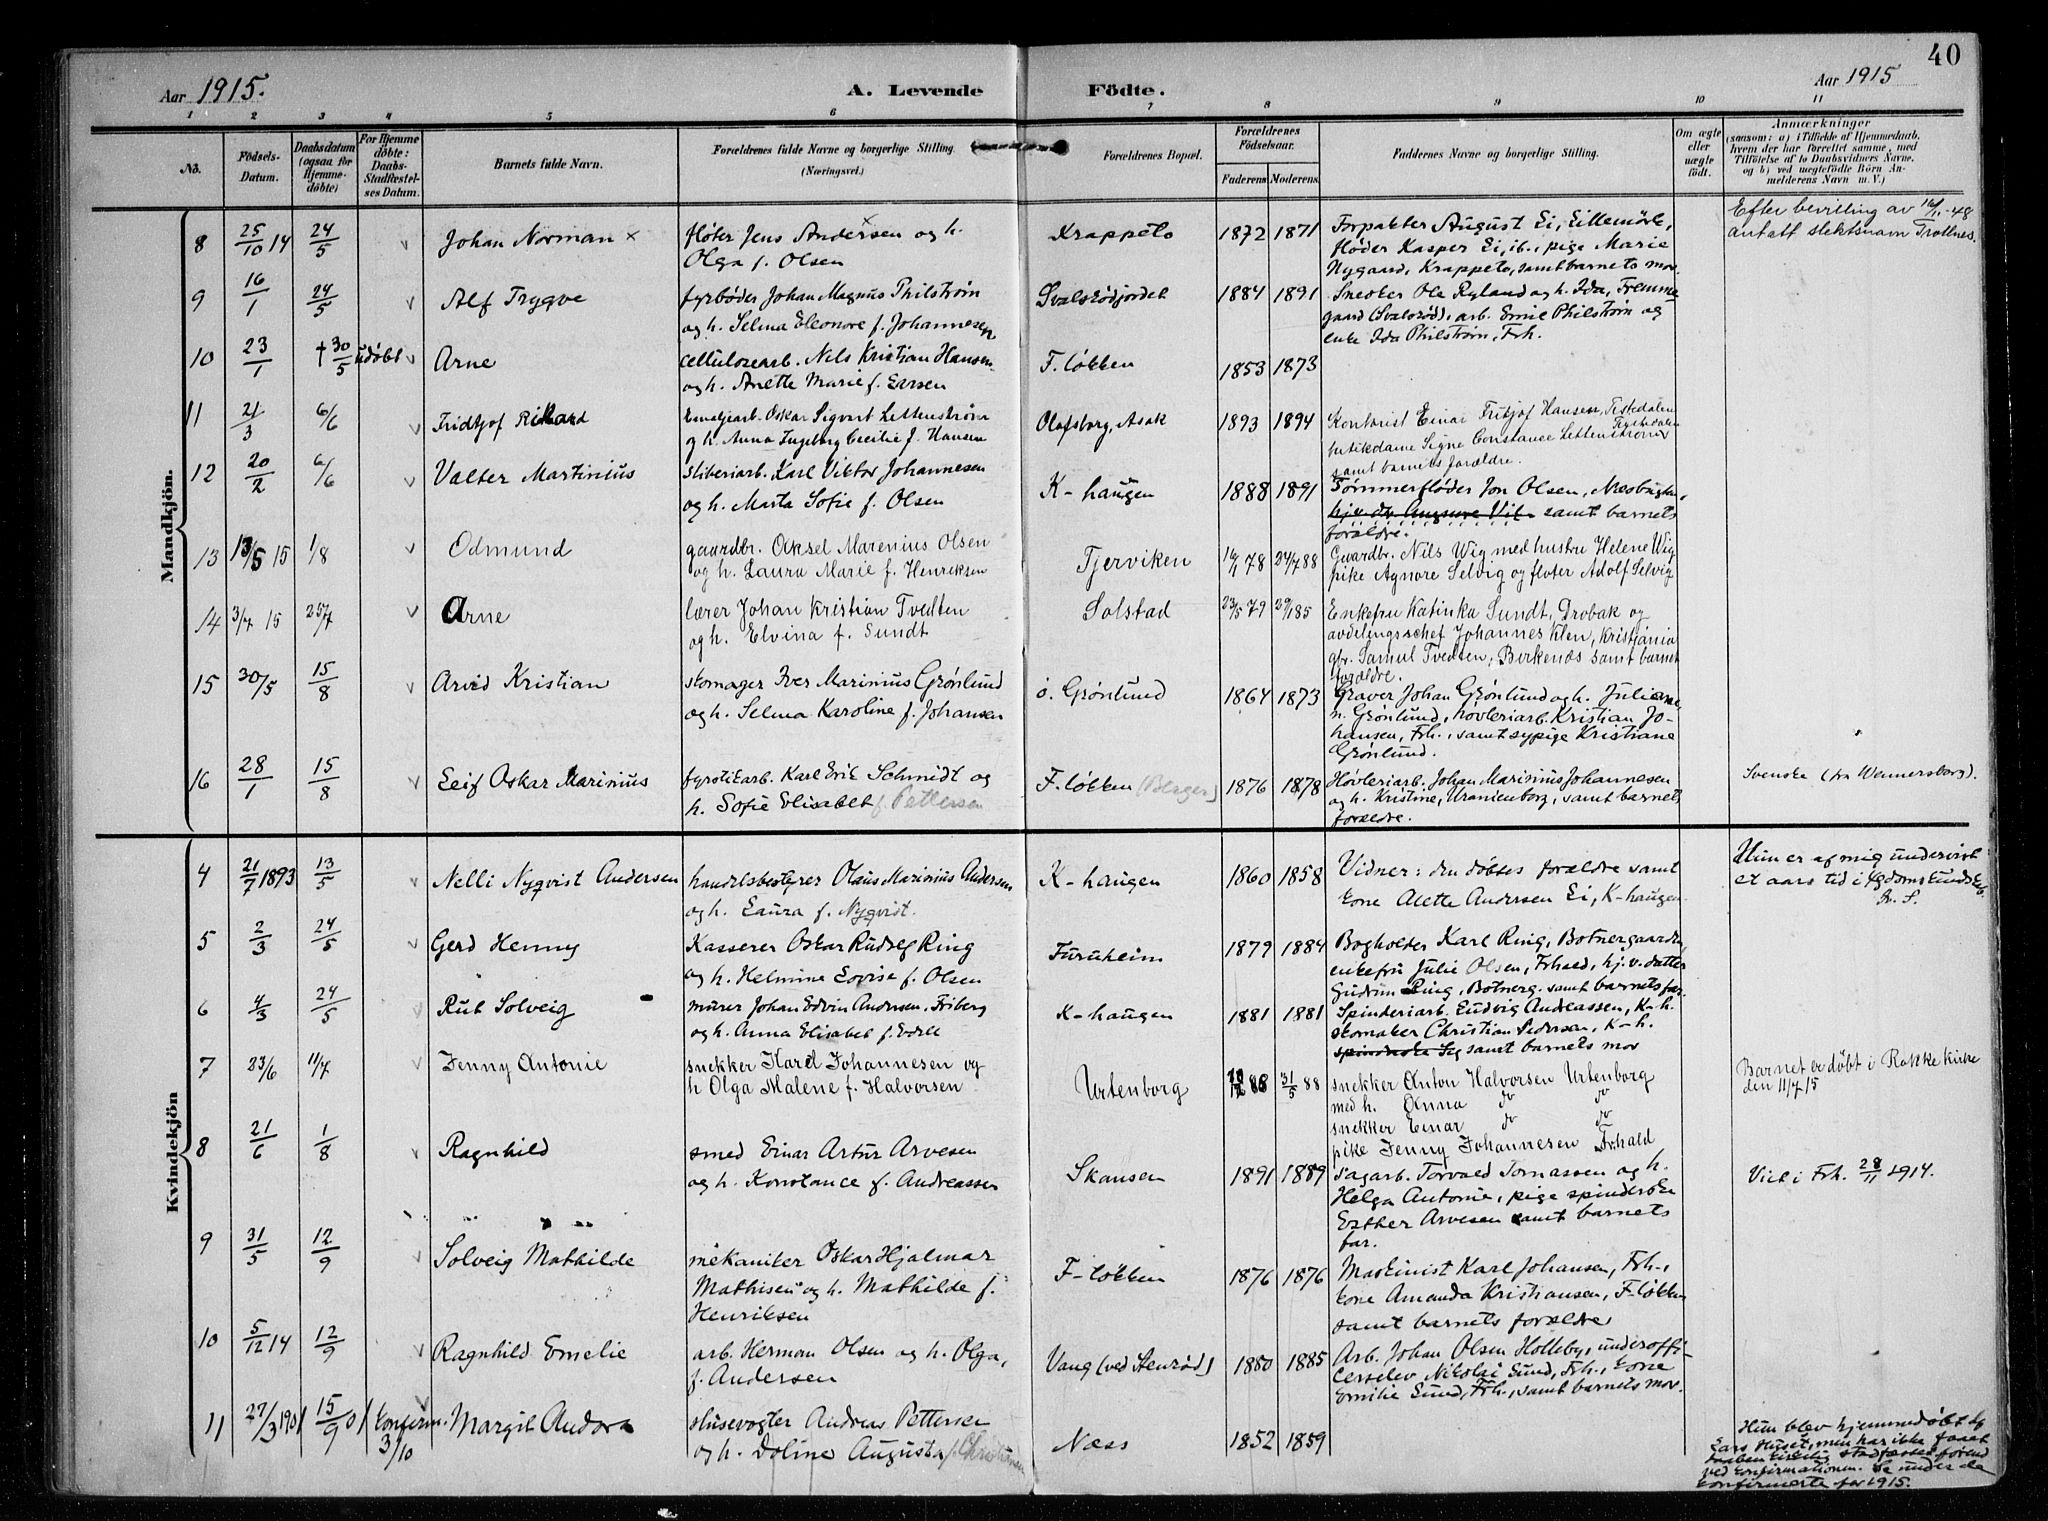 40
Aar 1915.
A. Levende
Födte.
Aar 1915
1 2 3 4 5 6 7 8 9 10 11
No.
Födsels-Datum.
Daabsdatum (ogsaa for Hjemmedöbte)
For Hjemmedöbte: Daabs-Stadfæstelses Datum.
Barnets fulde Navn.
Forældrenes fulde Navne og borgerlige Stilling.
(Næringsvei.)
Forældrenes Bopæl.
Forældrenes Födselsaar.
Faderens Moderens
Faddernes Navne og borgerlige Stilling.
Om ægte eller uægte födt.
Anmærkninger
(saasom: a) i Tilfælde af Hjemmedaab, hvem der har forrettet samme, med Tilföielse af to Daabsvidners Navne, og b) ved uægtefödte Börn Anmelderens Navn m. V.)
Mandkjön.
8 25/10 14 24/5 Johan Norman x fløter Jens Andersen x og h. Olga f. Olsen Krappeto 1872 1871 Forpakter August Ei, Lillemörk, fløder Kasper Ei, ib., pige Marie Nygaard, Krappeto, samt barnets mor. Efter bevilling av 16/11-48 antatt slektsnavn Trollnes.
9 16/1 24/5 Alf Trygve fyrbøder Johan Magnus Philstrøm og h. Selma Eleonore f. Johannesen Svalerödjordet 1884 1891 Snedker Ole Ryland og h. Ida, Fremmegaard (Svalerød), arb. Emil Philstrøm og enke Ida Philstrøm, Frh.
10 23/1 † 30/5 udöbt Arne cellulosearb. Nils Kristian Hansen og h. Anette Marie f. Larsen F. løkken 1853 1873
11 21/3 6/6 Fridtjof Rikard Emaljearb. Oskar Sigvart Lettenstrøm og h. Anna Ingeborg Cecilie f. Hansen Olafsborg, Asak 1893 1894 Kontorist Einar Fritjof Hansen, Tistedalen butikdame Signe Constance Lettenstrøm Tistedalen samt barnets forældre.
12 20/2 6/6 Valter Martinius sliberiarb. Karl Viktor Johannesen og h. Marta Sofie f. Olsen K-haugen 1888 1891 Tømmerfløder Jon Olsen, Næsbugten, samt barnets forældre.
13 13/5 15 1/8 Odmund gaardbr. Aksel Marenius Olsen og h. Laura Marie f. Henriksen Tjerviken 16/1 78 24/7 88 Gaardbr. Nils Wig med hustru Helene Wig pike Agnore Selvig og fløter Adolf Selvig
14 3/4 15 25/7 Arne lærer Johan Kristian Tvedten og h. Elvina f. Sundt Solstad 23/5 79 29/1 85 Enkefru Katinka Sundt, Drøbak og avdelingsschef Johannes Klen, Kristiania gbr. Samuel Tvedten, Birkenæs samt barnets forældre.
15 30/5 15/8 Arvid Kristian skomager Iver Marinius Grønlund og h. Selma Karoline f. Johansen ö. Grønlund 1864 1873 graver Johan Grønlund og h. Juliane, n. Grønlund, høvleriarb. Kristian Johansen, Frh., samt sypige Kristiane Grønlund.
16 28/1 15/8 Leif Oskar Marinius fyrstikarb. Karl Erik Schmidt og h. Sofie Elisabet f. Pettersen F. løkken (Berger) 1876 1878 Høvleriarb. Johan Marinius Johannesen og h. Kristine, Uranienborg, samt barnets forældre. Svenske (fra Wennersborg).
Kvindekjön
4 21/7 1893 13/5 Nelli Nyqvist Andersen handelsbestyrer Olaus Marinius Andersen og h. Laura f. Nyqvist. K-haugen 1860 1858 Vidner: den døbtes forældre samt kone Alette Andersen Ei, K-haugen. Hun er af mig undervist et aars tid i kristendomskundskab.
5 2/3 24/5 Gerd Henny Kasserer Oskar Rudolf Ring og h. Helmine Lovise f. Olsen Furuheim 1879 1884 Bogholder Karl Ring, Botnergaarden enkefru Julie Olsen, Frhald, hj. v. datter Gudrun Ring, Botnerg. samt barnets far.
6 4/3 24/5 Rut Solveig murer Johan Edvin Andersen, Friberg og h. Anna Elisabet f. Edell K-haugen 1881 1881 Spinderiarb. Ludvig Andreassen, K-h. skomaker Christian Pedersen, K-h. samt barnets mor
7 23/6 11/7 Jenny Antonie snekker Karl Johannesen og h Olga Malene f. Halvorsen Urtenborg 88 31/5 88 snekker Anton Halvorsen Urtenborg med h. Anna do do snekker Einar do do pike Jenny Johannesen Frhald Barnet er døbt i Rokke kirke den 11/7 15
8 21/6 1/8 Ragnhild smed Einar Artur Arvesen og h. Konstance f. Andreassen Skansen 1891 1889 Sagarb. Torvald Tomassen og h. Helga Antonie, pige spinderske Esther Arvesen samt barnets far. Viet i Frh. 28/11 1914.
9 31/5 12/9 Solveig Mathilde mekaniker Oskar Hjalmar Mathisen og h. Mathilde f. Henriksen F-løkken 1876 1876 Maskinist Karl Johansen, Frh., kone Amanda Kristiansen, F-løkken samt barnets forældre
10 5/12 14 12/9 Ragnhild Emelie arb. Herman Olsen og h. Olga, f. Andersen Vang (ved Stenrød) 1880 1885 Arb. Johan Olsen Holleby, underofficerselev Nikolai Lund, Frh., kone Emilie Lund, Frh., samt barnets mor.
11 27/3 1901 15/9 01 konfirm. 3/10 Margit Andora slusevogter Andreas Pettersen og h. Doline Augusta f. Christiansen Næss 1852 1859 Hun blev hjemmedøbt af Lars Huset, men har ikke faaet daaben kirkelig stadfæstet førend ved konfirmationen. Se under de konfirmerte for 1915.